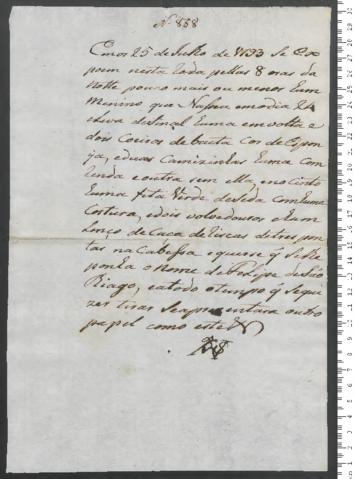 Nº 838
Em os 25 de Julho de 1793 se Ex
poem nesta Roda pellas 8 oras da
Notte pouco mais ou menos hum
Menino que Nasseu em o dia 24
Leva de sinal huma emvolta e
dois Coeiros de baeta Cor de Espon
ja, e duas Camizinhas huma com
Renda e outra sem ella, e no cinto
huma fita Verde, com huma
Costura, e dois volvedouros e hum
Lenço de Caça de riscas de tres pon
tas na Cabessa e quer se q̃ se lhe
ponha o Nome de Felipe de São
Tiago, e a todo o tempo q̃ se qui
zer tirar se aprezentara outro
papel como este